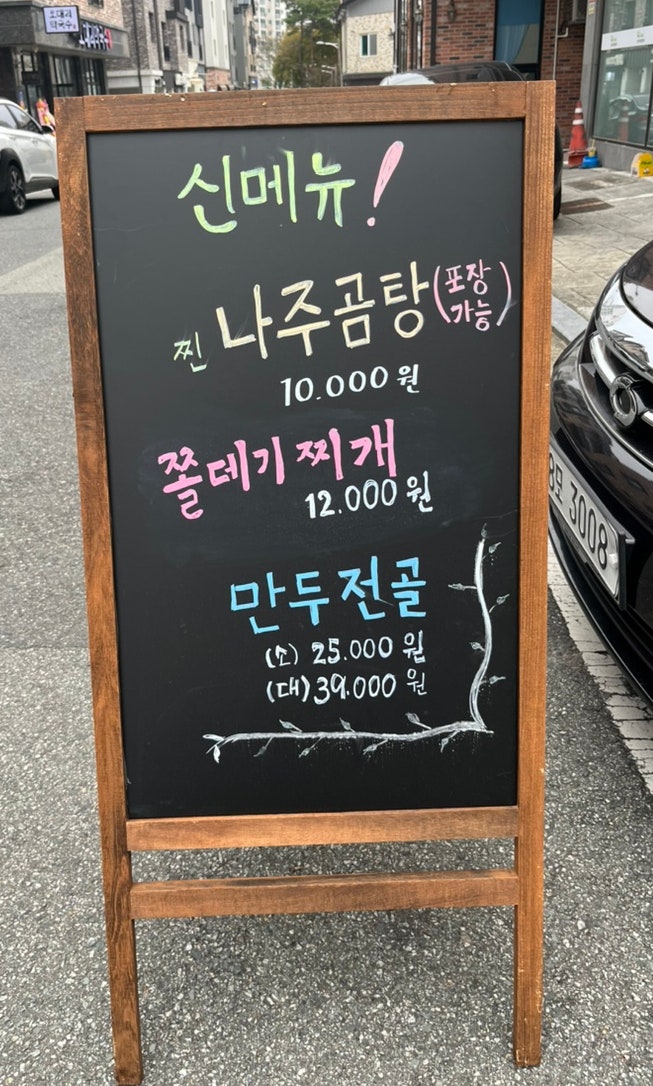 신메뉴!
찐 나주곰탕 (포장 가능)
10.000원
쫄데기 찌개
12.000원
만두전골
(소) 25.000원
(대) 39.000원
3008